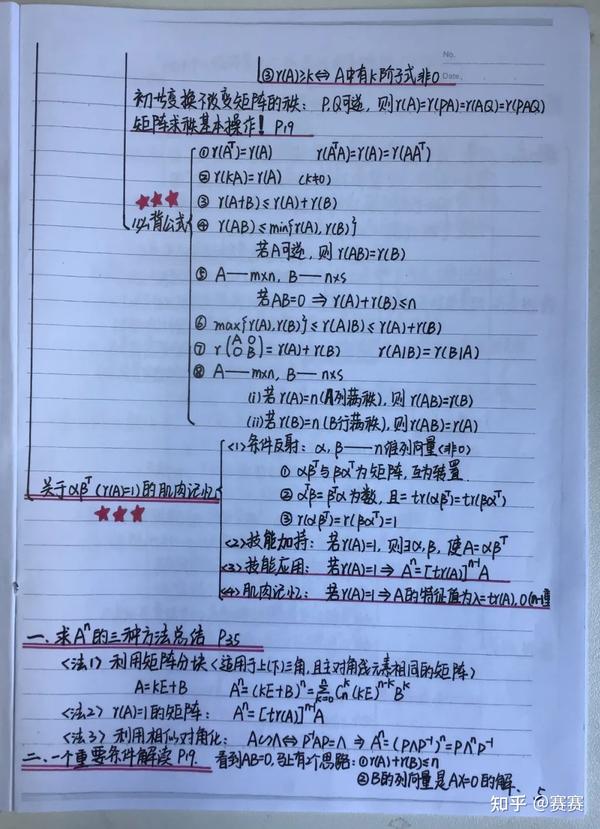 No.
③ r(A)≥k ⇔ A中有k阶子式非0
Date.
初等变换不改变矩阵的秩: P.Q可逆, 则r(A)=r(PA)=r(AQ)=r(PAQ)
矩阵求秩基本操作! P19
① r(Aᵀ)=r(A) r(AᵀA)=r(A)=r(AAᵀ)
② r(kA)=r(A) (k≠0)
③ r(A+B)≤r(A)+r(B)
必背公式
④ r(AB)≤min{r(A),r(B)}
若A可逆, 则r(AB)=r(B)
⑤ A—m×n, B—n×s
若AB=0 ⇒ r(A)+r(B)≤n
⑥ max{r(A),r(B)}≤r(A|B)≤r(A)+r(B)
⑦ r(A O
O B)=r(A)+r(B) r(A|B)=r(B|A)
⑧ A—m×n, B—n×s
(i)若r(A)=n(A列满秩), 则r(AB)=r(B)
(ii)若r(B)=n(B行满秩), 则r(AB)=r(A)
关于αβᵀ(r(A)=1)的肌肉记忆
<1>条件反射: α,β—n维列向量(非0)
① αβᵀ与βαᵀ为矩阵, 互为转置
② αᵀβ=βᵀα为数, 且=tr(αβᵀ)=tr(βαᵀ)
③ r(αβᵀ)=r(βαᵀ)=1
<2>技能加持: 若r(A)=1, 则∃α,β, 使A=αβᵀ
<3>技能应用: 若r(A)=1 ⇒ Aⁿ=[tr(A)]ⁿ⁻¹A
<4>肌肉记忆: 若r(A)=1 ⇒ A的特征值为λ=tr(A), 0(n-1重
一、求Aⁿ的三种方法总结 P35
<法1>利用矩阵分块<适用于上(下)三角, 且主对角线元素相同的矩阵>
A=kE+B Aⁿ=(kE+B)ⁿ=∑ₖ₌₀ⁿ Cₙᵏ(kE)ⁿ⁻ᵏBᵏ
<法2> r(A)=1的矩阵: Aⁿ=[tr(A)]ⁿ⁻¹A
<法3>利用相似对角化: A∽Λ⇔P⁻¹AP=Λ ⇒ Aⁿ=(PΛP⁻¹)ⁿ=PΛⁿP⁻¹
二、一个重要条件解读 P19. 看到AB=0, 马上有2个思路: ①r(A)+r(B)≤n
②B的列向量是AX=0的解.
5
知乎 @赛赛